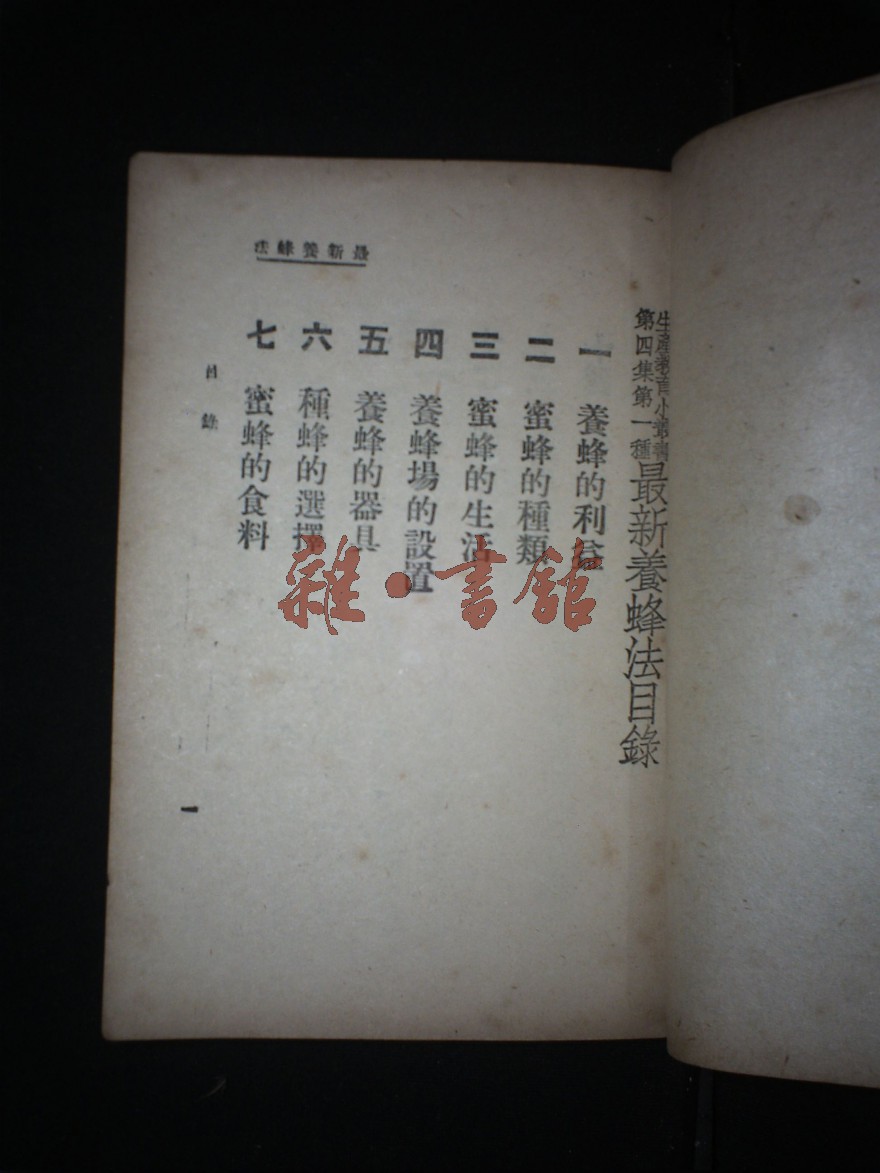 最新養蜂法
生產教育小叢書
第四集第一種
最新養蜂法目錄
一 養蜂的利益
二 蜜蜂的種類
三 蜜蜂的生活
四 養蜂場的設置
五 養蜂的器具
六 種蜂的選擇
七 蜜蜂的食料
目錄
一
雜·書館